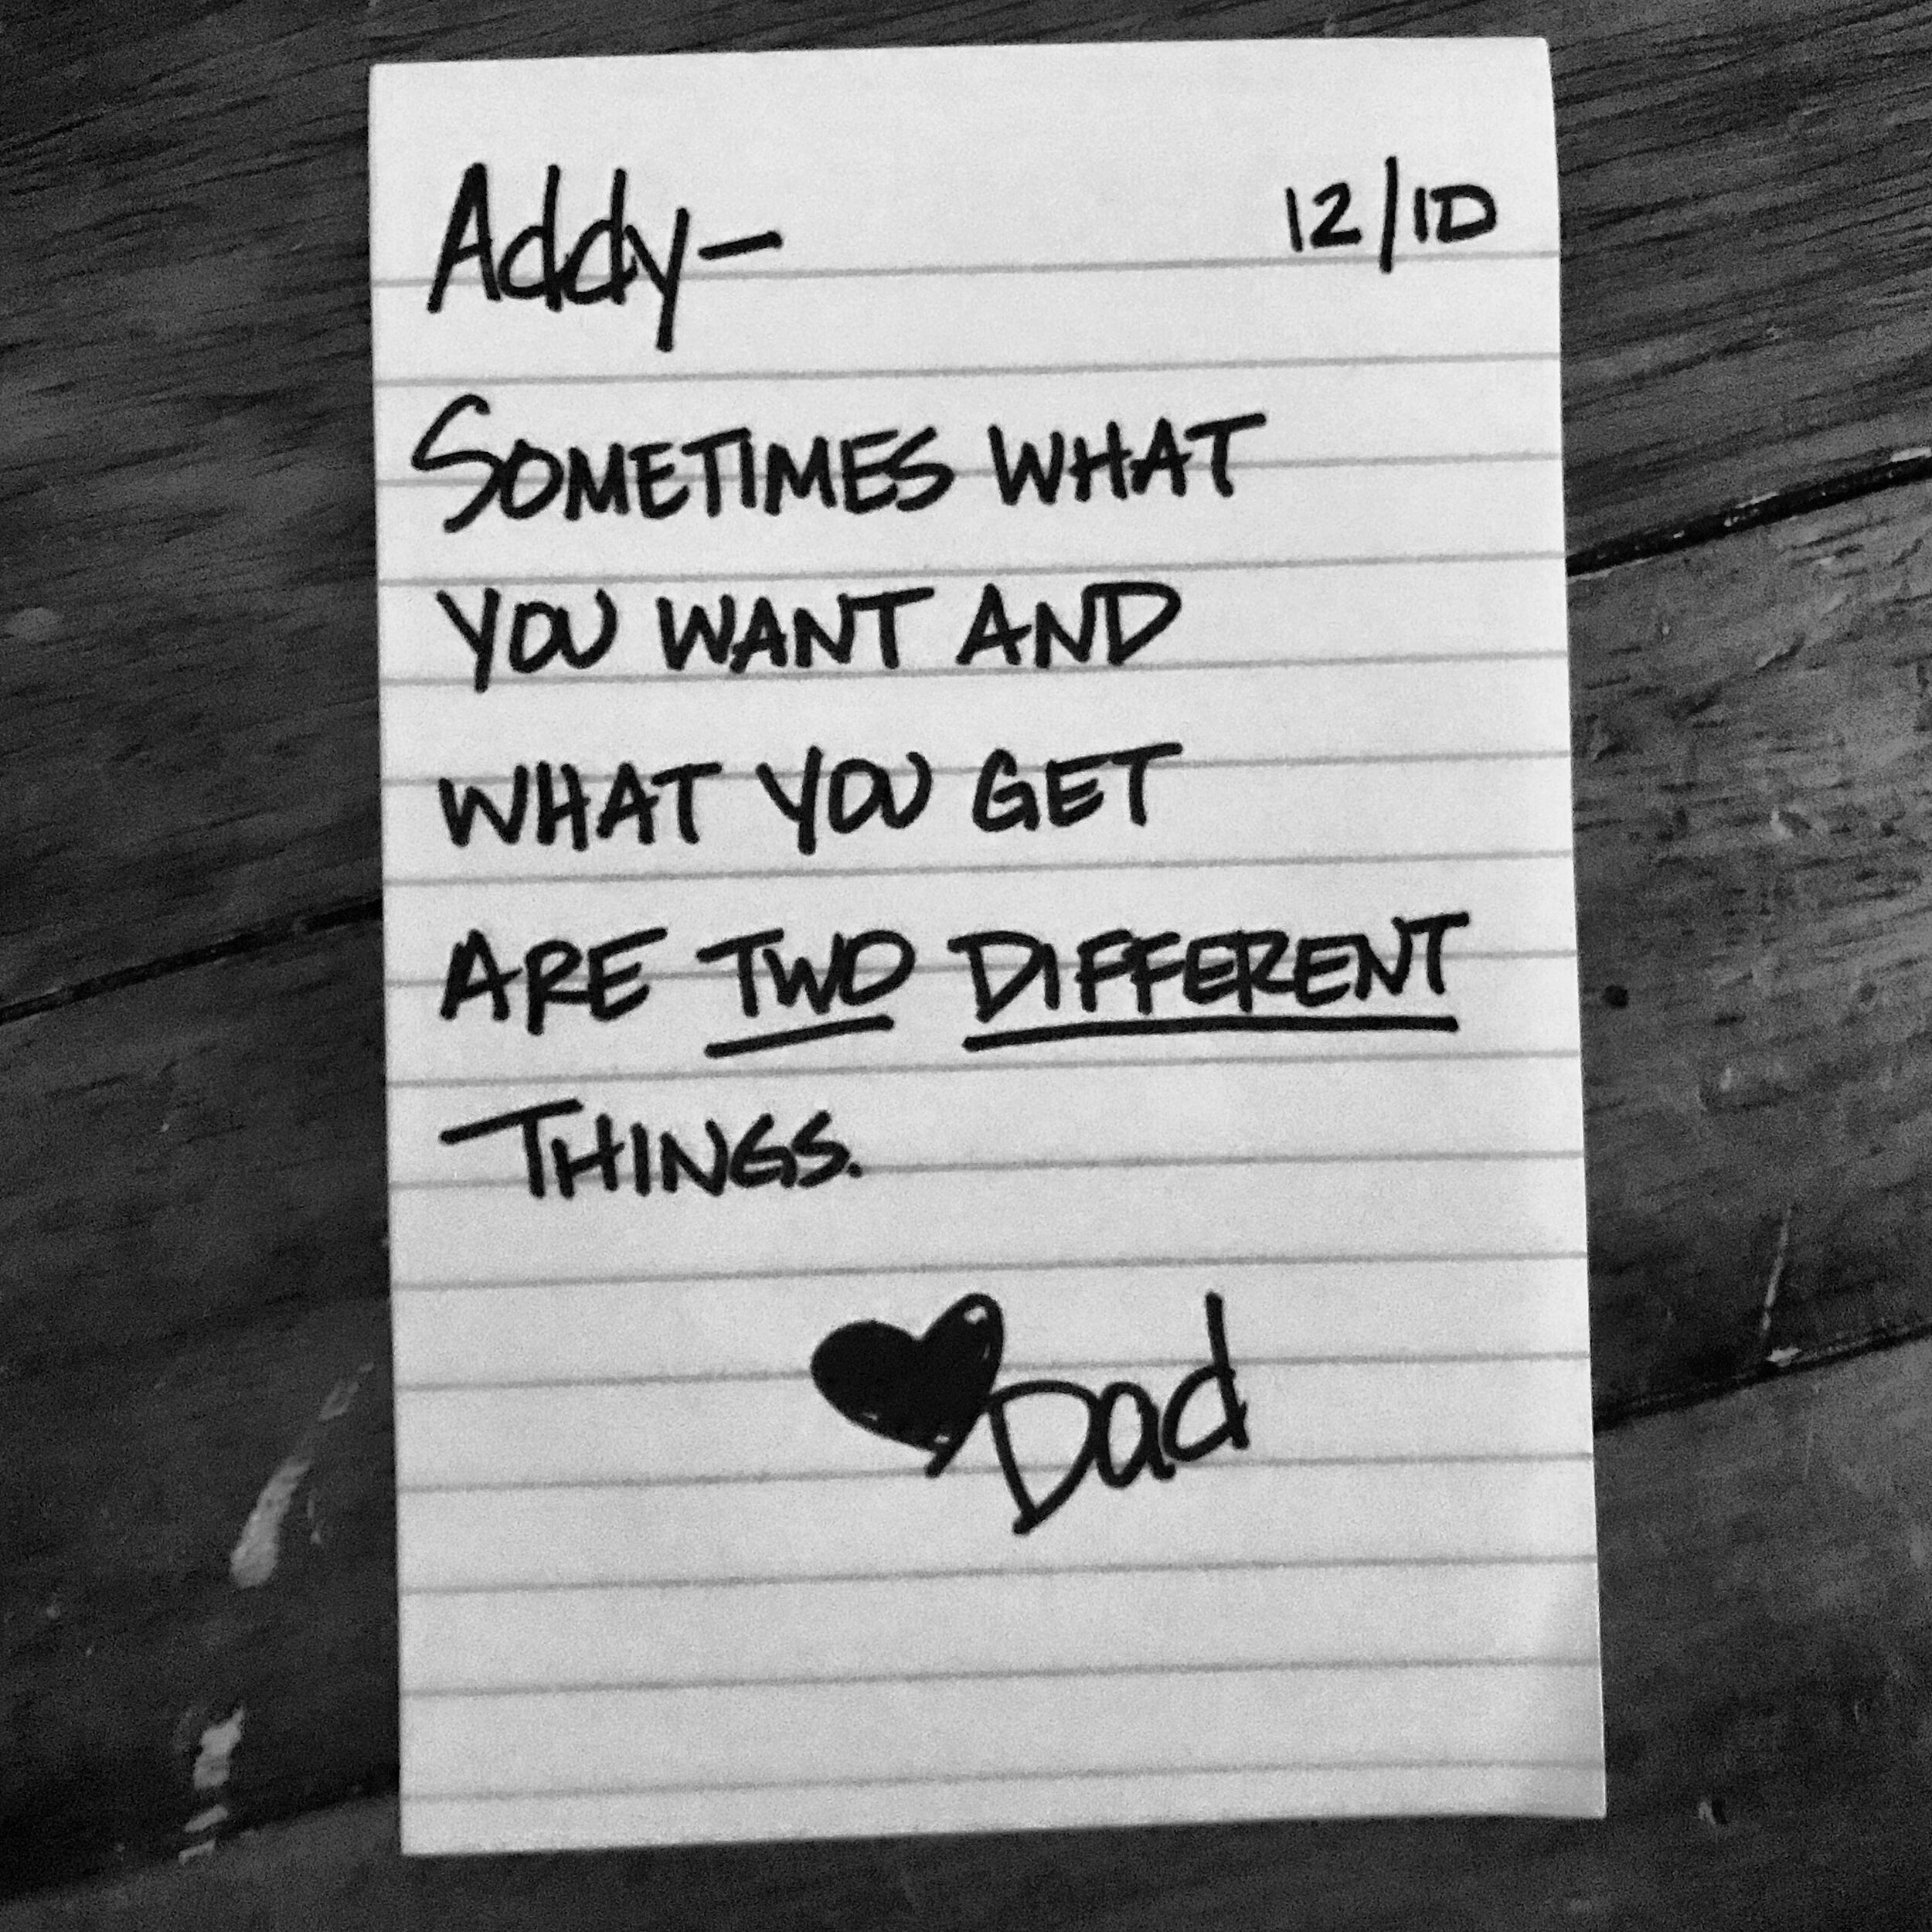 Addy— 12/10
SOMETIMES WHAT
YOU WANT AND
WHAT YOU GET
ARE TWO DIFFERENT
THINGS.
♥Dad